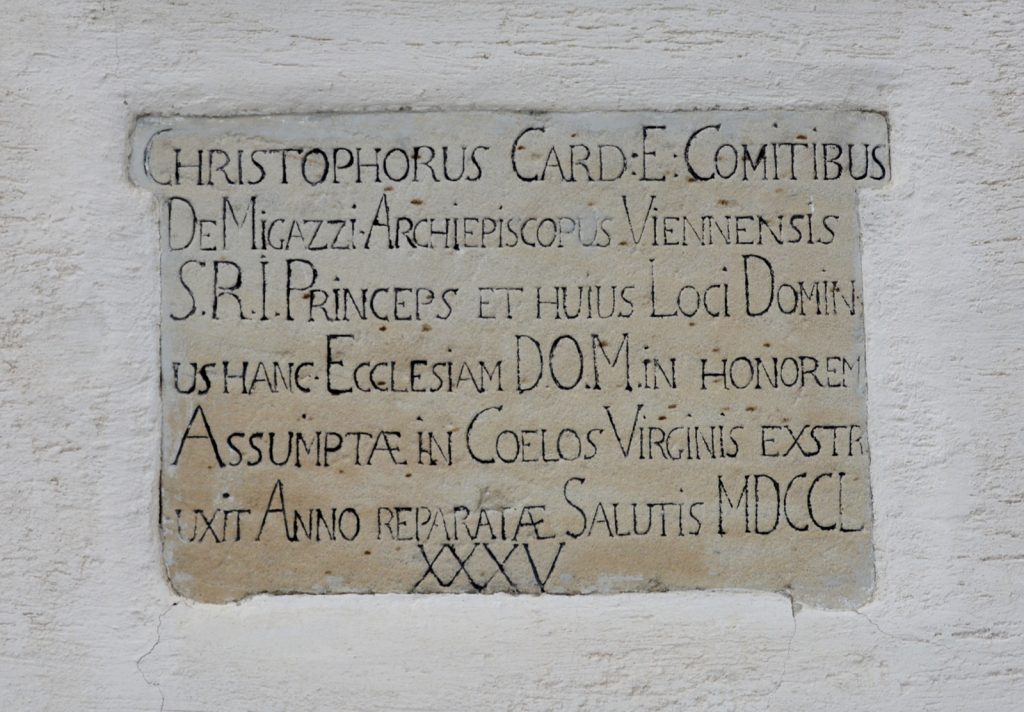 CHRISTOPHORUS CARD:E:COMITIBUS
DE MIGAZZI·ARCHIEPISCOPUS VIENNENSIS
S.R.I.PRINCEPS ET HUIUS LOCI DOMIN-
US HANC·ECCLESIAM D.O.M.IN HONOREM
ASSUMPTÆ IN COELOS VIRGINIS EXSTR
UXIT ANNO REPARATÆ SALUTIS MDCCL
XXXV